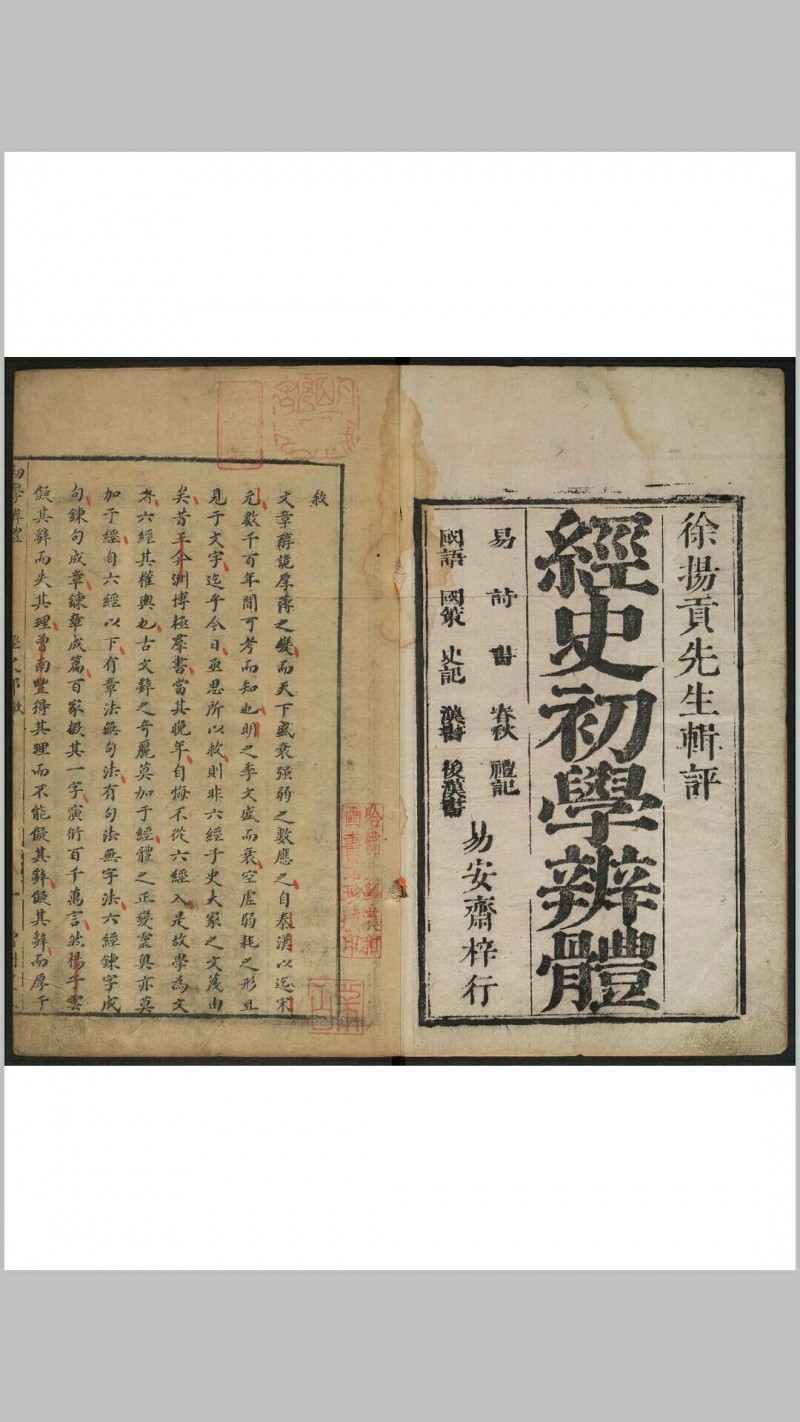 徐揚貢先生輯評
經史初學辨體
易 詩 書 春秋 禮記
國語 國策 史記 漢書 後漢書
易安齋梓行
敘
文章醇詭厚薄之變而天下盛衰强弱之數應之自秦漢以迄宋
元數千百年間可考而知也明之季文盛而衰空虛弱耗之形且
見于文字迄乎今日亟思所以救則非六經子史大家之文茂由
矣昔王弇洲博極羣書當其晚年自悔不從六經入是故學為文
者六經其權輿也古文辭之奇麗莫加于經體之正變靈奧亦莫
加于經自六經以下有章法無句法有句法無字法六經鍊字成
句鍊句成章鍊章成篇百家擬其一字演衍百千萬言然揚子雲
儗其辭而失其理曾南豐得其理而不能儗其辭儗其辭而厚于
初學辨體